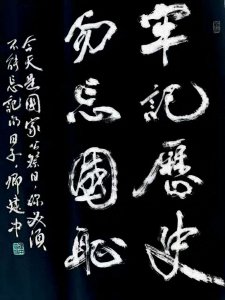 牢記歷史
勿忘國恥
今天是國家公祭日，你必須
不能忘記的日子